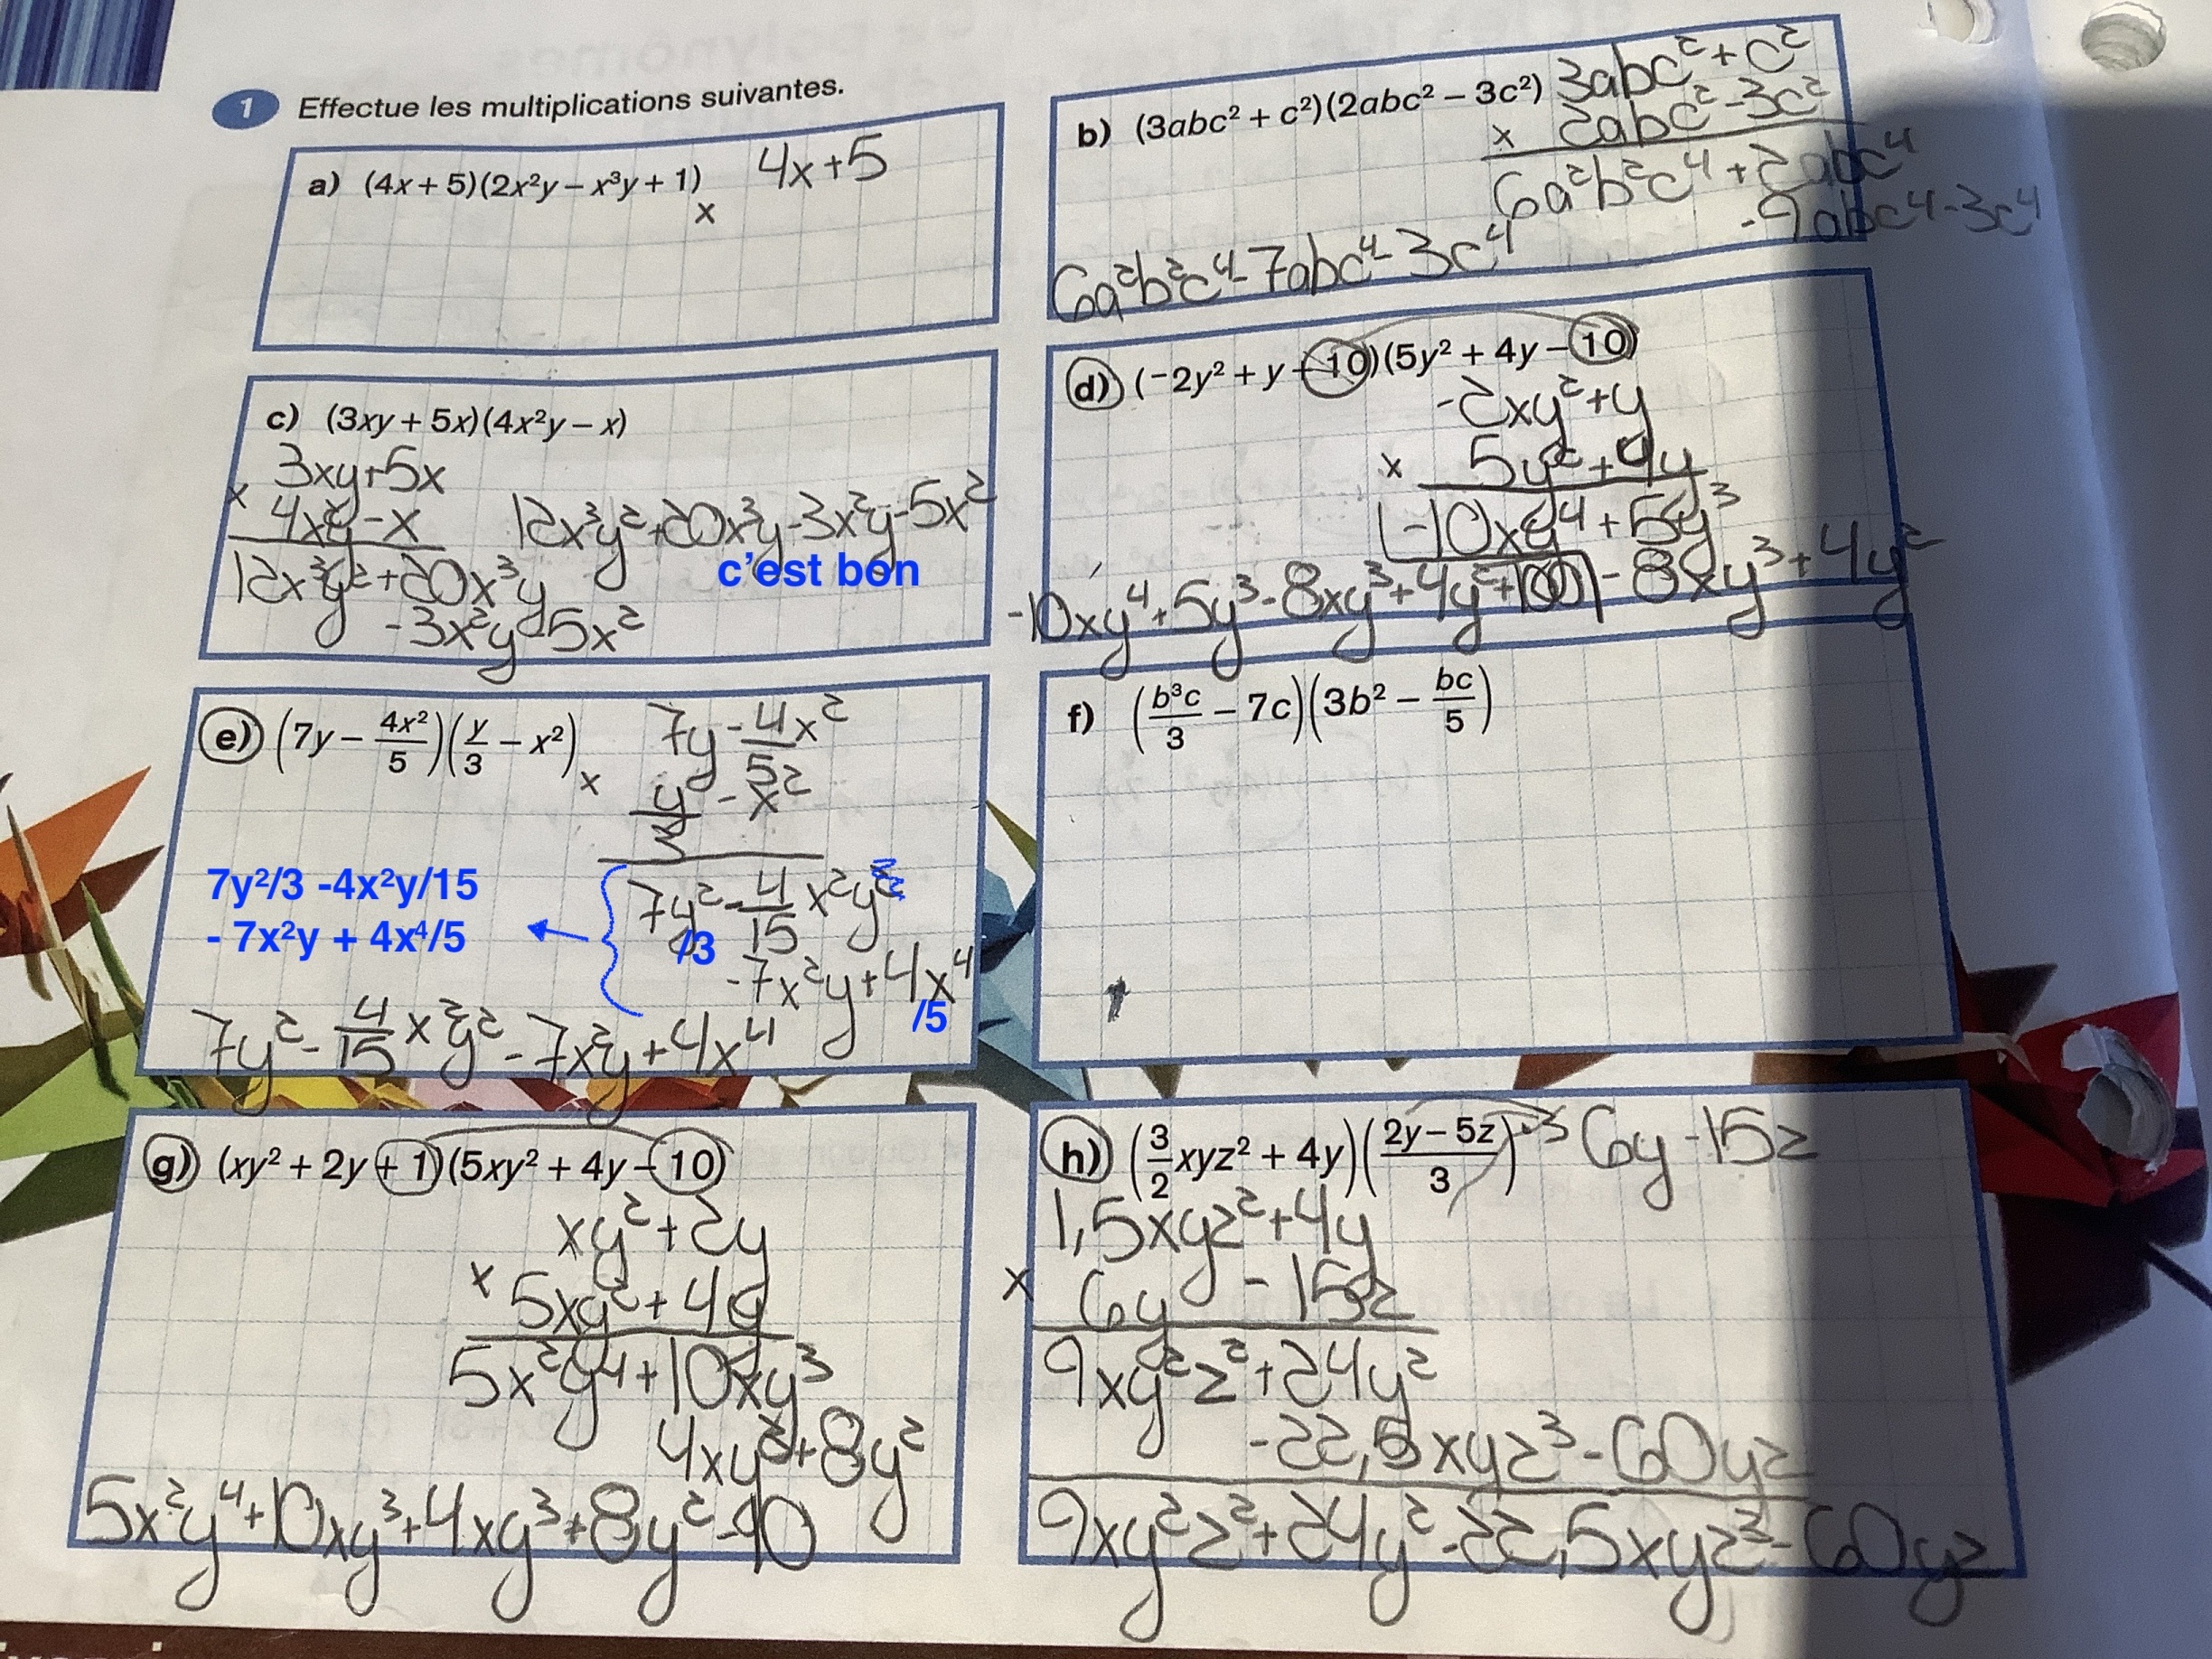 1 Effectue les multiplications suivantes.
a) (4x + 5)(2x²y – x³y + 1)
4x+5
x
b) (3abc² + c²)(2abc² – 3c²)
3abc²+c²
x 2abc²-3c²
6a²b²c⁴+2abc⁴
-9abc⁴-3c⁴
6a²b²c⁴-7abc⁴-3c⁴
c) (3xy + 5x)(4x²y – x)
3xy+5x
x 4x²y-x
12x³y²+20x³y
-3x²y-5x²
12x³y²+20x³y-3x²y-5x²
c’est bon
d) (-2y² + y – 10)(5y² + 4y – 10)
-2xy²+y
x 5y²+4y
-10xy⁴+5y³
-8xy³+4y²
-10xy⁴+5y³-8xy³+4y²+100
e) (7y – 4x²/5)(y/3 – x²)
7y-4/5x²
x y/3-x²
7y²-4/15x²y
/3
-7x²y+4x⁴
/5
7y²/3 -4x²y/15
- 7x²y + 4x⁴/5
7y²-4/15x²y²-7x²y+4x⁴
f) (b³c/3 – 7c)(3b² – bc/5)
g) (xy² + 2y + 1)(5xy² + 4y – 10)
xy²+2y
x 5xy²+4y
5x²y⁴+10xy³
4xy³+8y²
5x²y⁴+10xy³+4xy³+8y²-10
h) (3/2xyz² + 4y)(2y – 5z/3)
·3 6y-15z
1,5xyz²+4y
x 6y - 15z
9xy²z²+24y²
-22,5xyz³-60yz
9xy²z²+24y²-22,5xyz³-60yz